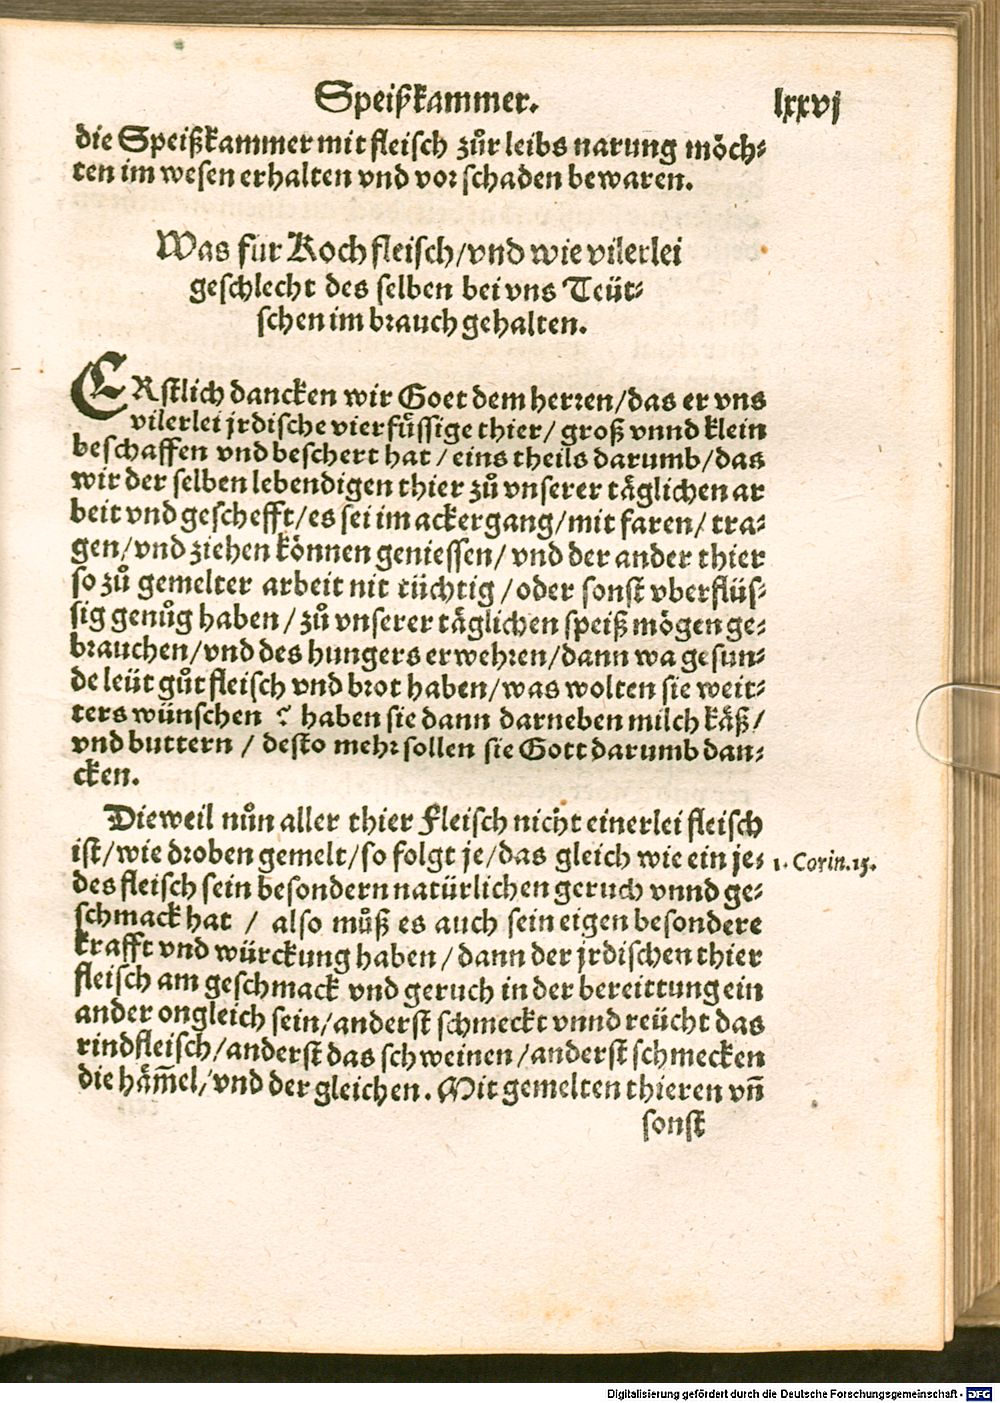 Speißkammer. lxxvj
die Speißkammer mit fleisch zůr leibs narung möch⸗
ten im wesen erhalten vnd vor schaden bewaren.
Was für Kochfleisch/vnd wie vilerlei
geschlecht des selben bei vns Teüt⸗
schen im brauch gehalten.
ERstlich dancken wir Goet dem herren/das er vns
vilerlei jrdische vierfüssige thier/ groß vnnd klein
beschaffen vnd beschert hat / eins theils darumb/das
wir der selben lebendigen thier zů vnserer täglichen ar
beit vnd geschefft/es sei im ackergang/mit faren/ tra⸗
gen/vnd ziehen können geniessen/ vnd der ander thier
so zů gemelter arbeit nit tüchtig /oder sonst vberflüs⸗
sig genůg haben / zů vnserer täglichen speiß mögen ge⸗
brauchen/vnd des hungers erwehren/dann wa gesun⸗
de leüt gůt fleisch vnd brot haben/was wolten sie weit⸗
ters wünschen ? haben sie dann darneben milch käß/
vnd buttern / desto mehr sollen sie Gott darumb dan⸗
cken.
Dieweil nůn aller thier Fleisch nicht einerlei fleisch
ist/wie droben gemelt/so folgt je/das gleich wie ein je⸗ 1. Corin.15.
des fleisch sein besondern natürlichen geruch vnnd ge⸗
schmack hat / also můß es auch sein eigen besondere
krafft vnd würckung haben/dann der jrdischen thier
fleisch am geschmack vnd geruch in der bereittung ein
ander ongleich sein/anderst schmeckt vnnd reücht das
rindfleisch/anderst das schweinen/anderst schmecken
die häm̄el/vnd der gleichen. Mit gemelten thieren vn̄
sonst
Digitalisierung gefördert durch die Deutsche Forschungsgemeinschaft - DFG